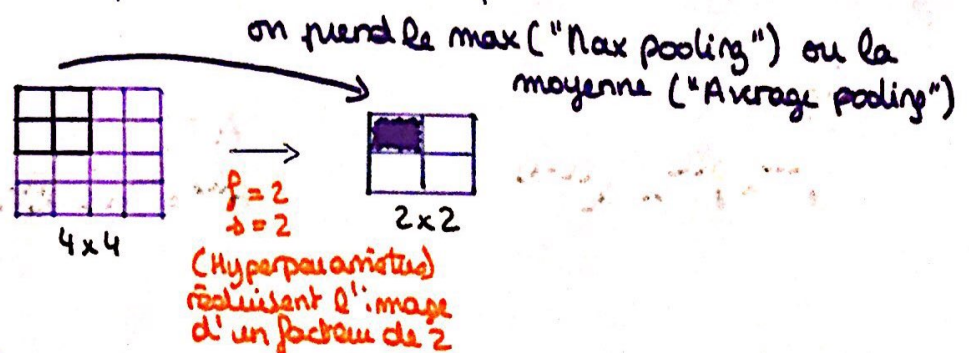 on prend le max ("Max pooling") ou la
moyenne ("Average pooling")
f = 2
s = 2
4 x 4
2 x 2
(Hyperparamètres)
réduisent l'image
d'un facteur de 2